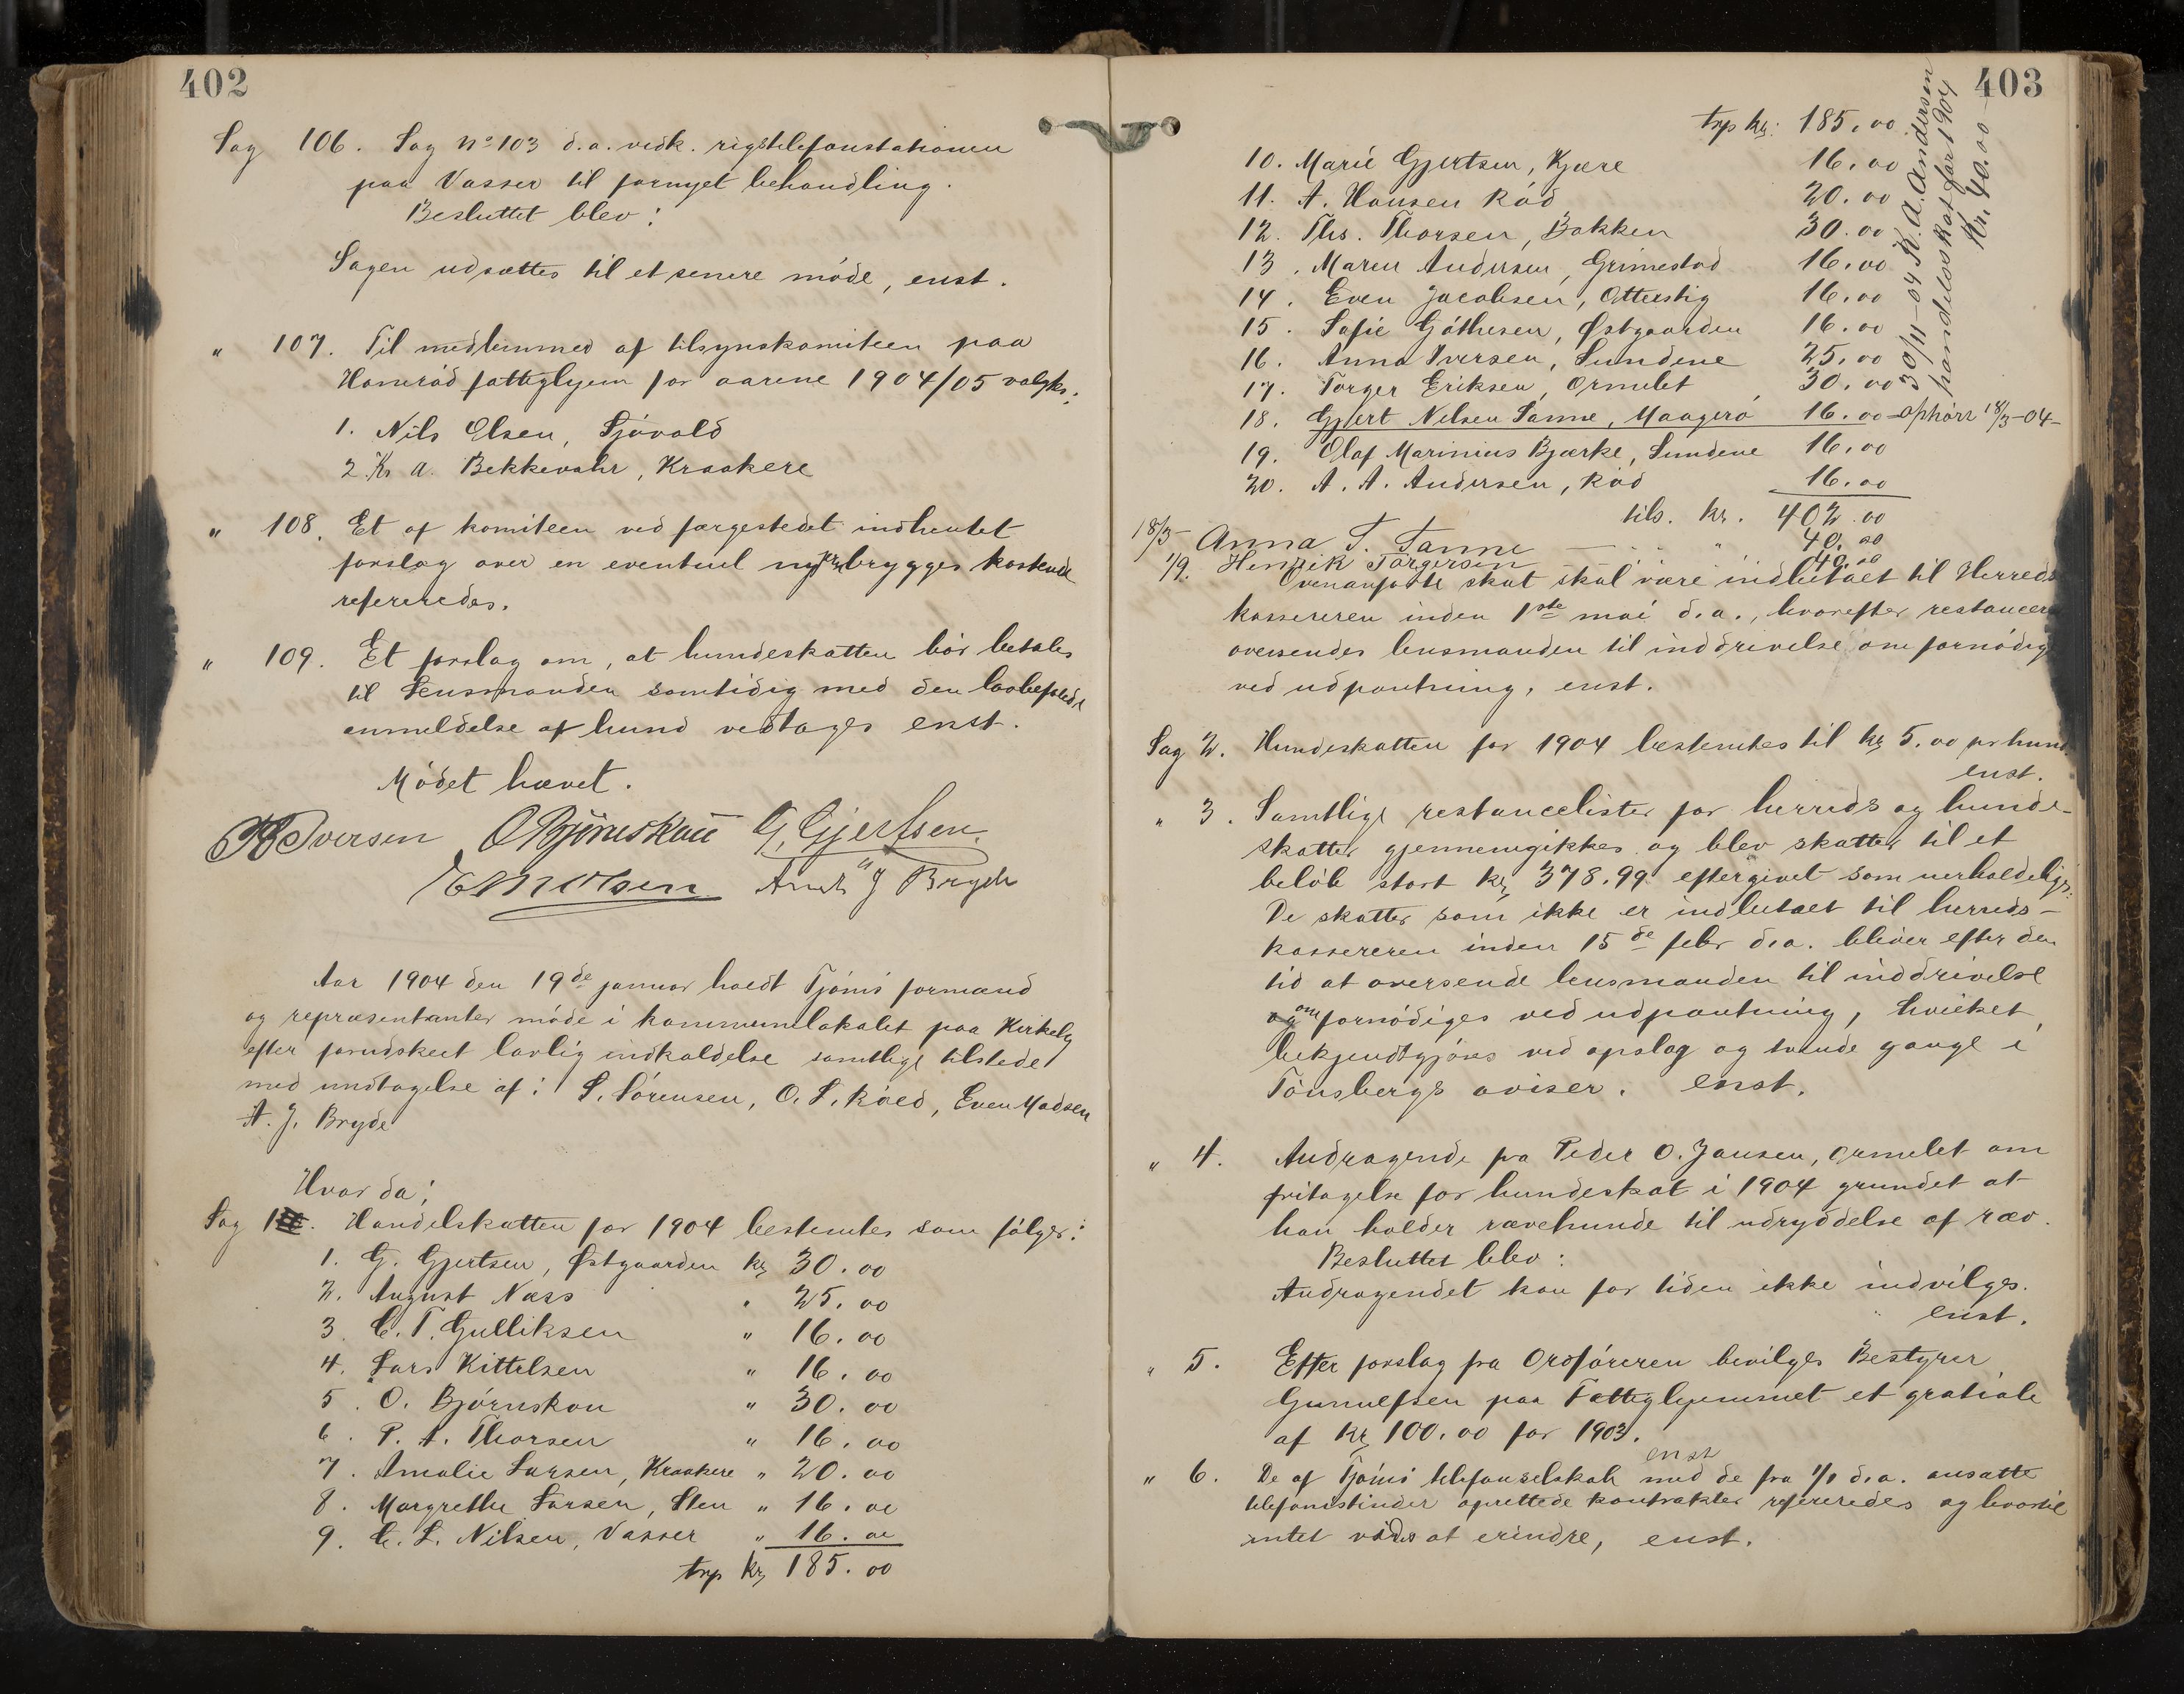 402
Sag 106. Sag No 103 d.a. vedk. rigstelefonstationen
paa Vasser til fornyet behandling.
Besluttet blev:
Sagen udsættes til et senere møde, enst.
" 107. Til medlemmer af tilsynskomiteen paa
Homröd fattighjem for aarene 1904/05 valgtes:
1. Nils Olsen, Sjövold
2. Kr. A. Bekkevahr, Kraakere
" 108. Et af komiteen ved færgestedet indhentet
forslag over en eventuel ny brygges kostende
refereredes.
" 109. Et forslag om, at hundeskatten bör betales
til Lensmanden samtidig med den lovbefalede
anmeldelse af hund vedtages enst.
Mödet hævet.
Iversen O Björnskau G. Gjertsen.
Olsen A J Bryde
Aar 1904 den 19de januar holdt Tjömö formænd
og repræsentanter möde i kommunelokalet paa Kirkely
efter forudskeet lovlig indkaldelse samtlige tilstede
med undtagelse af: S. Sörensen, O. L. Röed, Even Madsen
A. J. Bryde
Hvor da:
Sag 1. Handelskatten for 1904 bestemtes som fölger:
1. G. Gjertsen, Østgaarden kr 30.00
2. August Næss " 25.00
3. C. T. Gulliksen " 16.00
4. Lars Kittelsen " 16.00
5. O. Björnskau " 30.00
6. P. A. Thorsen " 16.00
7. Amalie Larsen, Kraakere " 20.00
8. Margrethe Larsen, Sten " 16.00
9. C. L. Nilsen, Vasser " 16.00
trp kr 185.00
403
trp kr: 185.00
10. Marie Gjertsen, Kjære 16.00
11. A. Hansen Röd 20.00
12. Ths. Thorsen, Bakken 30.00
13. Maren Andersen, Grimestad 16.00
14. Even Jacobsen, Otterstig 16.00
15. Sofie Göthesen, Østgaarden 16.00
16. Anna Iversen, Sundene 25.00
17. Torger Eriksen, Ormelet 30.00
18. Gjert Nilsen Sanne, Maagerö 16.00 – ophört 18/3-04-
19. Olaf Marinius Bjærke, Sundene 16.00
20. A. A. Andersen, Röd 16.00
tils. kr. 402.00
30/11-04 K. A. Andersen
handelsskat for 1904
Kr. 40.00
18/5 Anna T. Sanne — " 40.00
1/9. Henrik Torgersen 40.00
Ovenanførte skat skal være indbetalt til Herreds
kassereren inden 1ste mai d.a., hvorefter restancer
oversendes lensmanden til inddrivelse om fornödig
ved udpantning, enst.
Sag 2. Hundeskatten for 1904 bestemtes til kr 5.00 pr hund
enst.
" 3. Samtlige restancelister for herreds og hunde-
skatter gjennemgikkes og blev skatter til et
belöb stort kr 378.99 eftergivet som uerholdelige.
De skatter som ikke er indbetalt til herreds-
kassereren inden 15de febr d.a. bliver efter den
tid at oversende lensmanden til inddrivelse
om fornödiges ved udpantning, hvilket
bekjendtgjöres ved opslag og tvende gange i
Tönsbergs aviser. enst.
" 4. Andragende fra Peder O. Jansen, Ormelet om
fritagelse for hundeskat i 1904 grundet at
han holder rævehunde til udryddelse af ræv.
Besluttet blev:
Andragendet kan for tiden ikke indvilges.
enst.
" 5. Efter forslag fra Ordföreren bevilges Bestyrer
Gunulfsen paa Fattighjemmet et gratiale
af kr 100.00 for 1903.
enst
" 6. De af Tjömö telefonselskab med de fra 1/1 d.a. ansatte
telefonistinder oprettede kontrakter refereredes og hvortil
intet vides at erindre, enst.